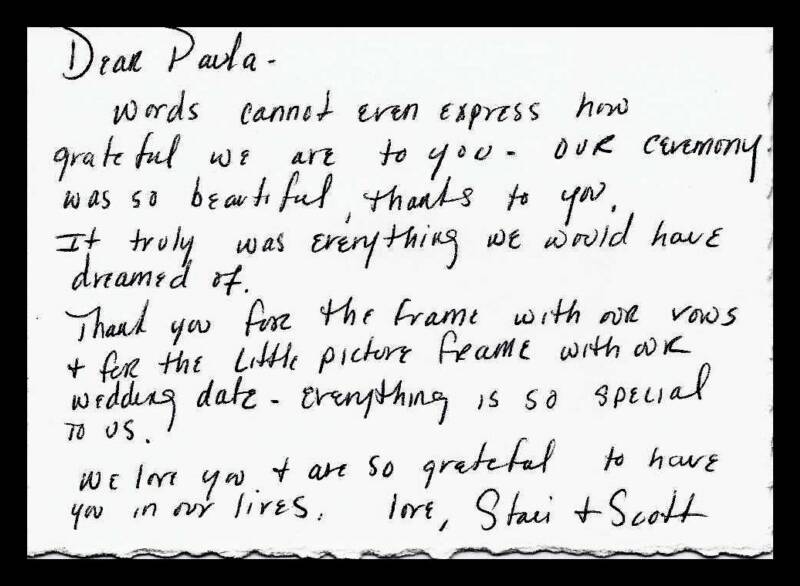 Dear Paula -
Words cannot even express how
grateful we are to you - our ceremony
was so beautiful, thanks to you.
It truly was everything we would have
dreamed of.
Thank you for the frame with our vows
+ for the little picture frame with our
wedding date - everything is so special
to us.
We love you + are so grateful to have
you in our lives. love, Staci + Scott